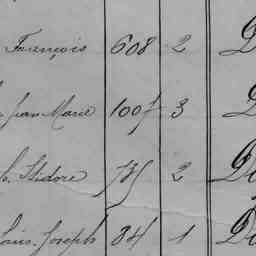 François 608 2 D
Jean Marie 1007 3 D
h. Isidore 2 D
Louis Joseph 84 1 D